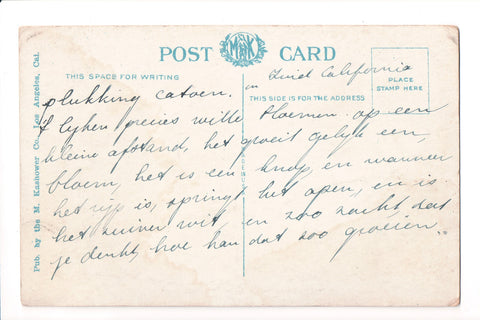 POST CARD
M K
THIS SPACE FOR WRITING
THIS SIDE IS FOR THE ADDRESS
PLACE
STAMP HERE
Pub. by the M. Kashower Co., Los Angeles, Cal.
plukking catoen. in Zuid California
't lyken precies witte bloemen. op een
kleine afstand, het groeit gelyk een,
bloem, het is een knop, en wanneer
het ryp is, springt het open, en is
het zuiver wit, en zoo zacht dat
je denkt, hoe kan dat zoo groeien..